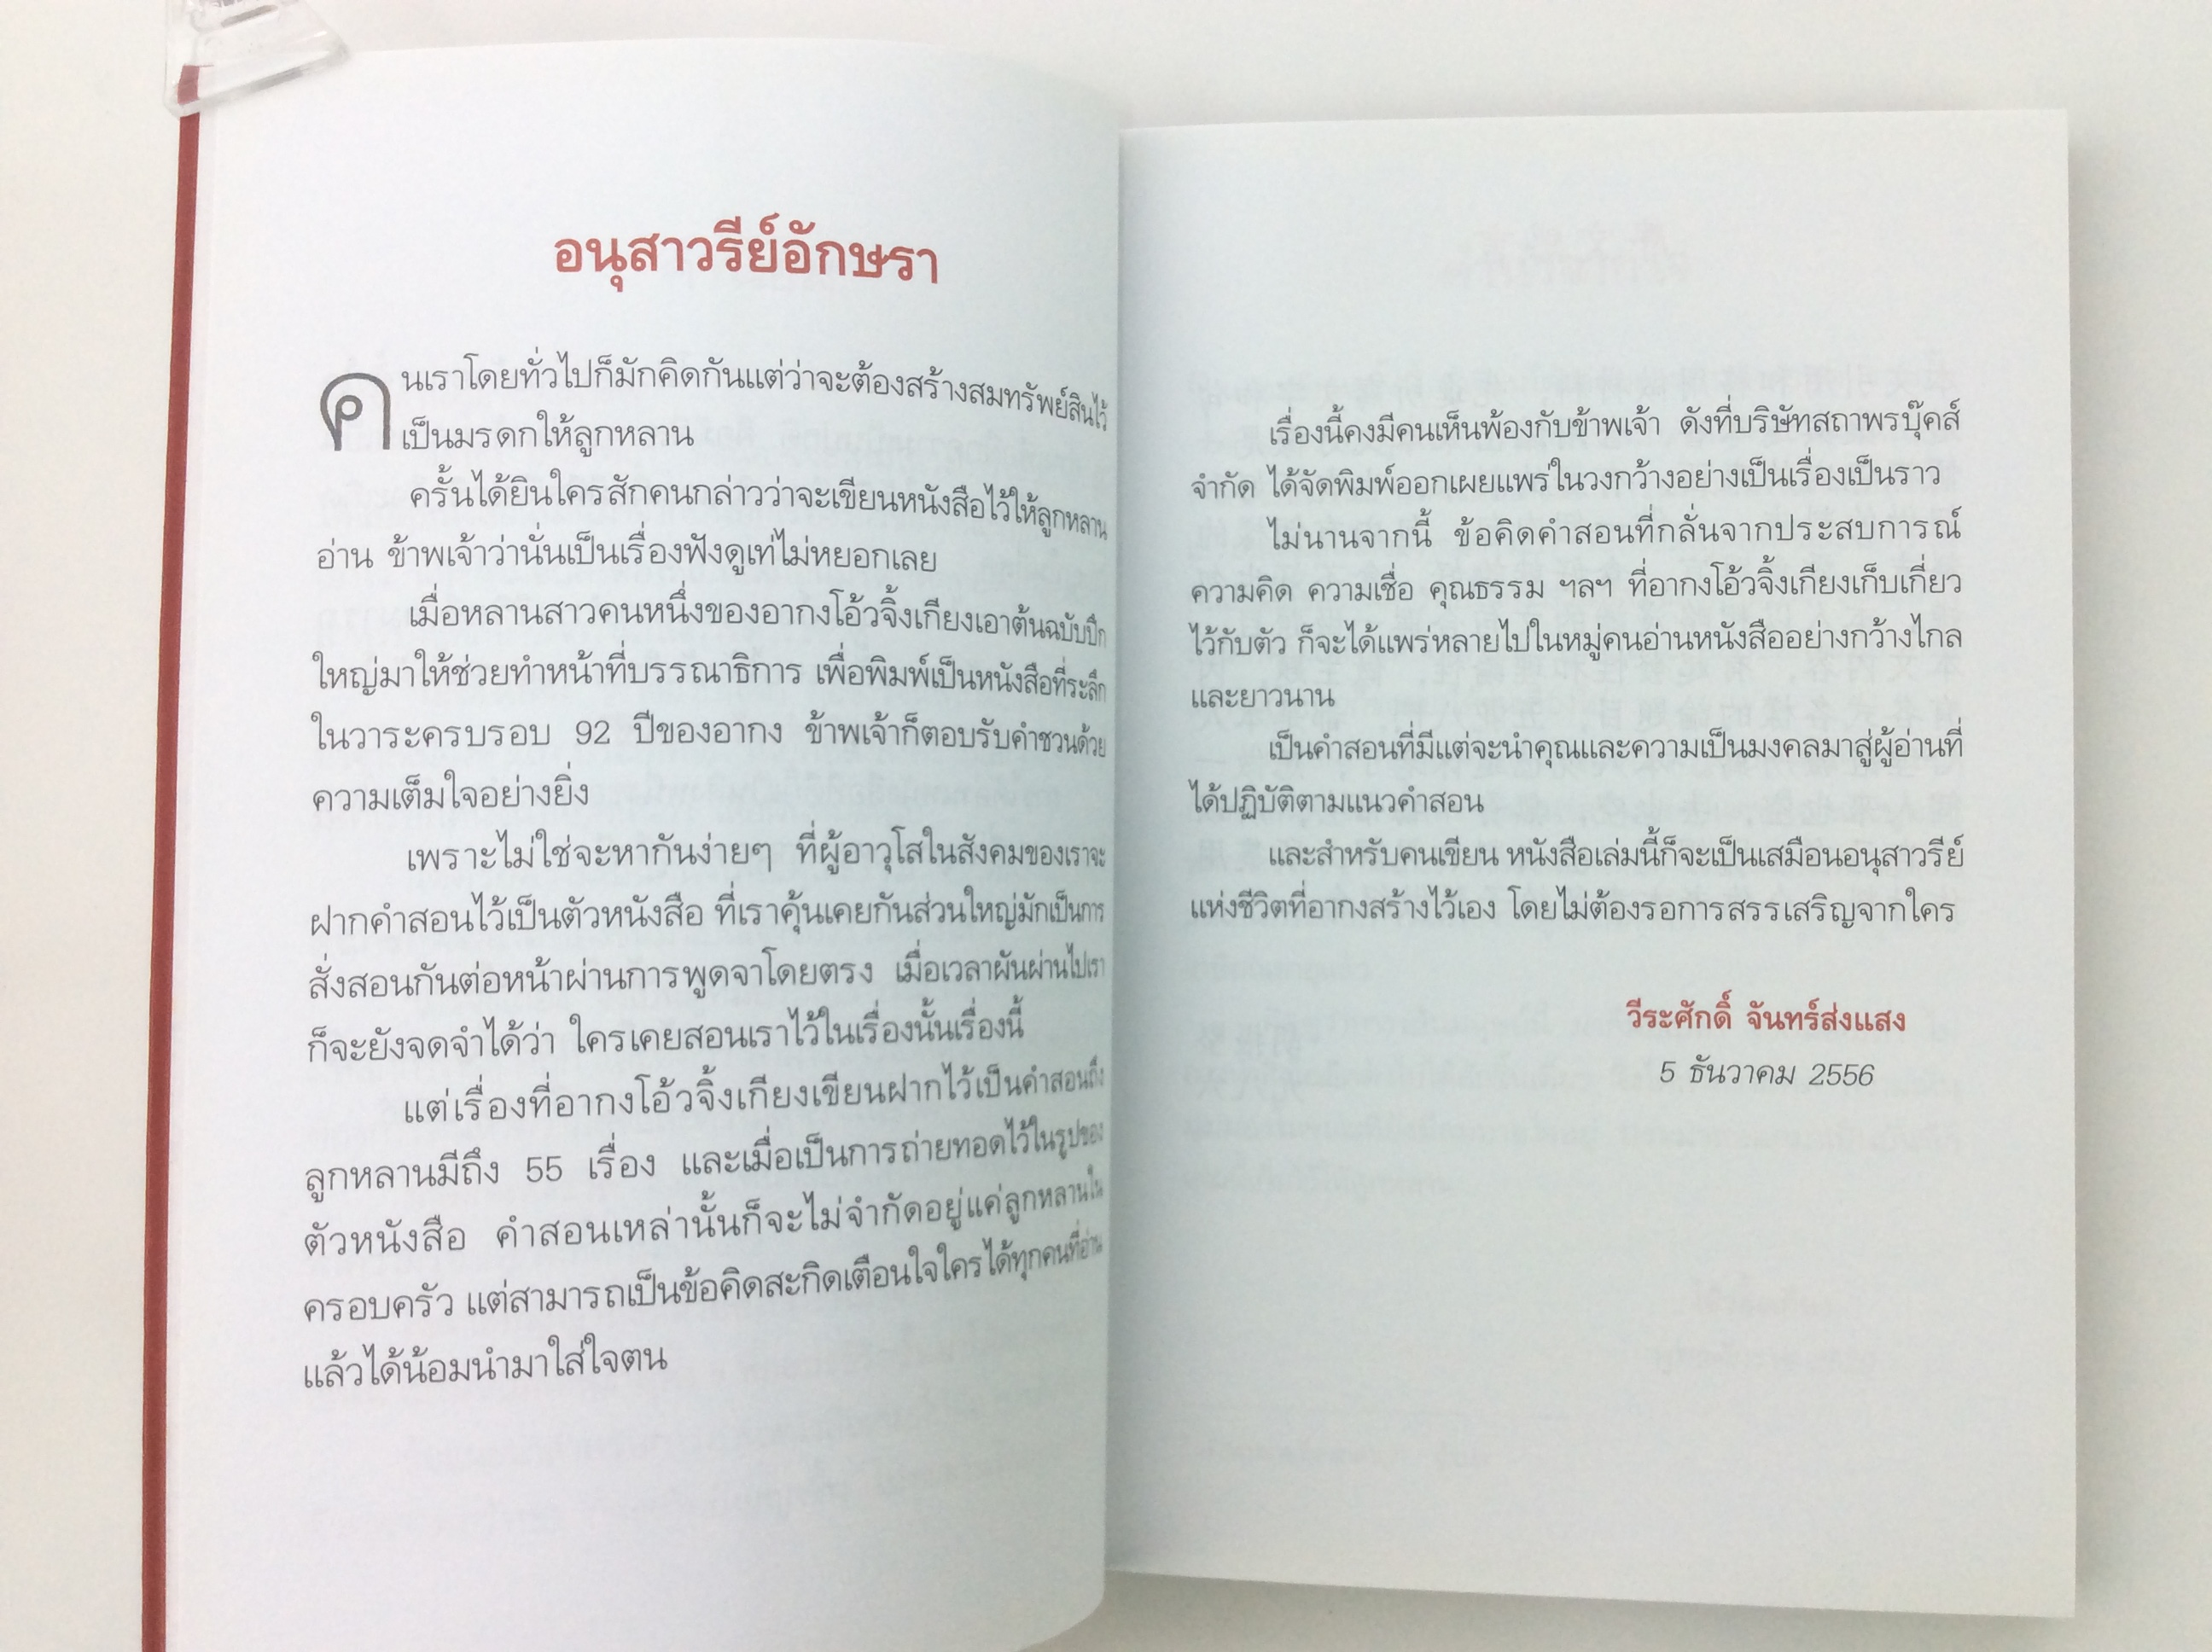 อนุสาวรีย์อักษรา
คนเราโดยทั่วไปก็มักคิดกันแต่ว่าจะต้องสร้างสมทรัพย์สินไว้
เป็นมรดกให้ลูกหลาน
ครั้นได้ยินใครสักคนกล่าวว่าจะเขียนหนังสือไว้ให้ลูกหลาน
อ่าน ข้าพเจ้าว่านั่นเป็นเรื่องฟังดูเท่ไม่หยอกเลย
เมื่อหลานสาวคนหนึ่งของอากงโอ้วจิ้งเกียงเอาต้นฉบับปึก
ใหญ่มาให้ช่วยทำหน้าที่บรรณาธิการ เพื่อพิมพ์เป็นหนังสือที่ระลึก
ในวาระครบรอบ 92 ปีของอากง ข้าพเจ้าก็ตอบรับคำชวนด้วย
ความเต็มใจอย่างยิ่ง
เพราะไม่ใช่จะหากันง่ายๆ ที่ผู้อาวุโสในสังคมของเราจะ
ฝากคำสอนไว้เป็นตัวหนังสือ ที่เราคุ้นเคยกันส่วนใหญ่มักเป็นการ
สั่งสอนกันต่อหน้าผ่านการพูดจาโดยตรง เมื่อเวลาผันผ่านไปเรา
ก็จะยังจดจำได้ว่า ใครเคยสอนเราไว้ในเรื่องนั้นเรื่องนี้
แต่เรื่องที่อากงโอ้วจิ้งเกียงเขียนฝากไว้เป็นคำสอนถึง
ลูกหลานมีถึง 55 เรื่อง และเมื่อเป็นการถ่ายทอดไว้ในรูปของ
ตัวหนังสือ คำสอนเหล่านั้นก็จะไม่จำกัดอยู่แค่ลูกหลานใน
ครอบครัว แต่สามารถเป็นข้อคิดสะกิดเตือนใจใครได้ทุกคนที่อ่าน
แล้วได้น้อมนำมาใส่ใจตน
เรื่องนี้คงมีคนเห็นพ้องกับข้าพเจ้า ดังที่บริษัทสถาพรบุ๊คส์
จำกัด ได้จัดพิมพ์ออกเผยแพร่ในวงกว้างอย่างเป็นเรื่องเป็นราว
ไม่นานจากนี้ ข้อคิดคำสอนที่กลั่นจากประสบการณ์
ความคิด ความเชื่อ คุณธรรม ฯลฯ ที่อากงโอ้วจิ้งเกียงเก็บเกี่ยว
ไว้กับตัว ก็จะได้แพร่หลายไปในหมู่คนอ่านหนังสืออย่างกว้างไกล
และยาวนาน
เป็นคำสอนที่มีแต่จะนำคุณและความเป็นมงคลมาสู่ผู้อ่านที่
ได้ปฏิบัติตามแนวคำสอน
และสำหรับคนเขียน หนังสือเล่มนี้ก็จะเป็นเสมือนอนุสาวรีย์
แห่งชีวิตที่อากงสร้างไว้เอง โดยไม่ต้องรอการสรรเสริญจากใคร
วีระศักดิ์ จันทร์ส่งแสง
5 ธันวาคม 2556